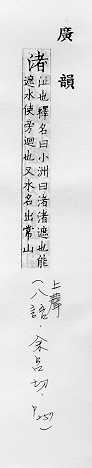 廣韻
渚
沚也釋名曰小洲曰渚渚遮也能
遮水使旁迴也又水名出常山
(上聲
八語·余呂切·P.257)